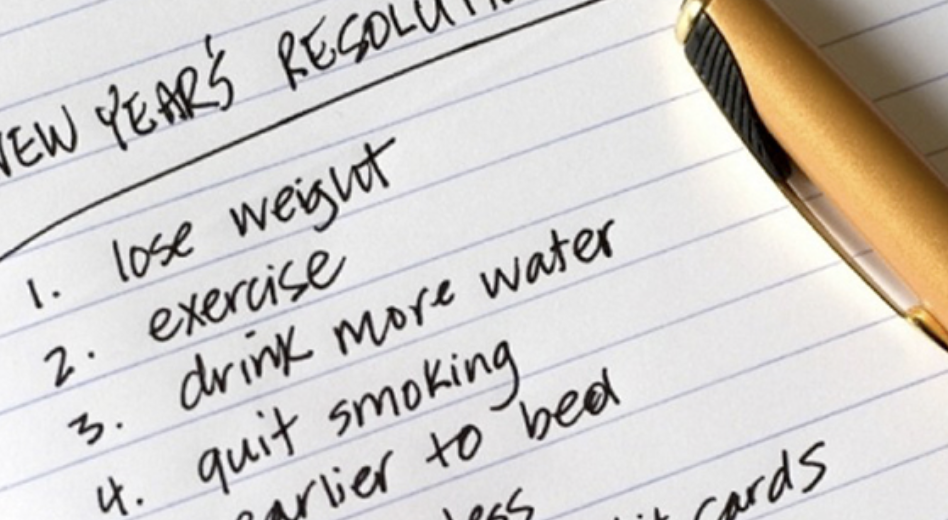 NEW YEAR'S
1. lose weight
2. exercise
3. drink more water
4. quit smoking
earlier to bed
less cards